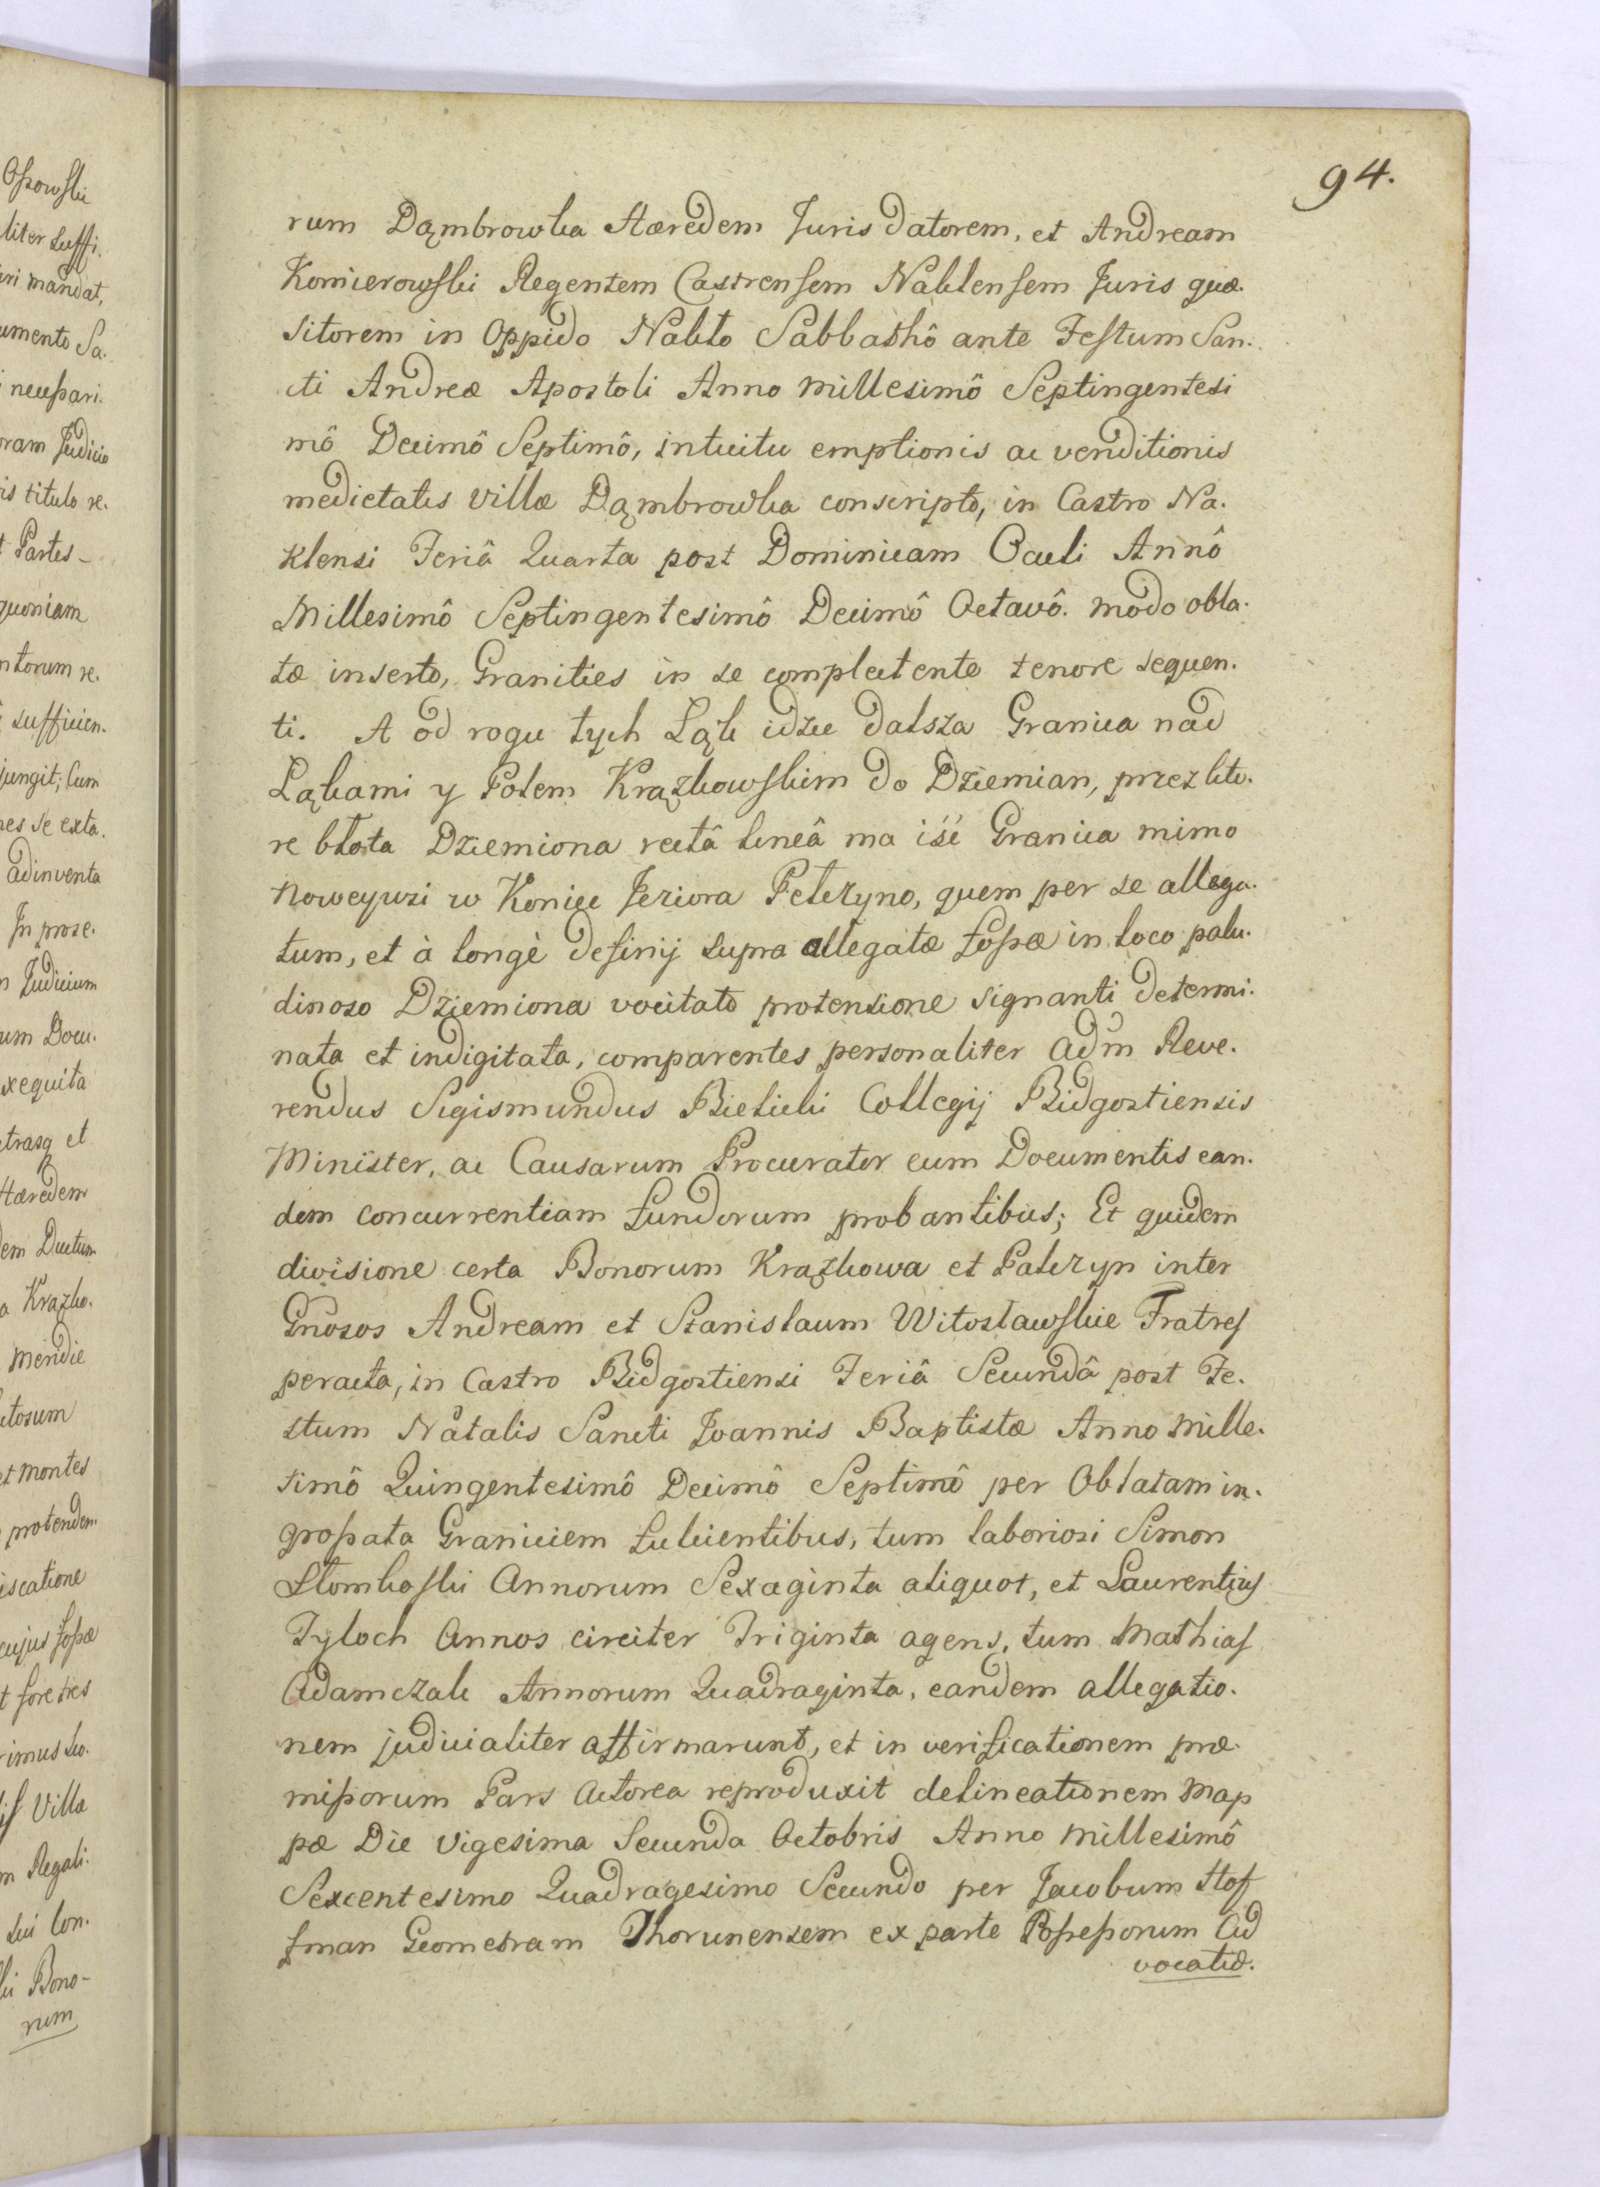 94.
rum Dąmbrowka Hæredem Juris datorem, et Andream
Komierowski Regentem Castrensem Naklensem Juris quæ-
sitorem in Oppido Nakło Sabbathô ante Festum San-
cti Andreæ Apostoli Anno Millesimô Septingentesi
mô Decimô Septimô, intuitu emptionis ac venditionis
medietatis Villæ Dąmbrowka conscripto, in Castro Na-
klensi Feriâ Quarta post Dominicam Oculi Annô
Millesimô Septingentesimô Decimô Octavô. modo obla-
tæ inserto, Granities in se complectente tenore sequen-
ti. A od rogu tych Łąk idzie dalsza Granica nad
Łąkami y Polem Krązkowskim do Dziemian, przez kto-
re błota Dziemiona rectâ lineâ ma iść Granica mimo
Noweywsi w Koniec Jeziora Peterzyno, quem per se allega-
tum, et à longè definij supra allegatæ fossæ in loco palu-
dinoso Dziemiona vocitato protensione signanti determi-
nata et indigitata, comparentes personaliter Adm̃ Reve-
rendus Sigismundus Bielicki Collegij Bidgostiensis
Minister, ac Causarum Procurator cum Documentis ean-
dem concurrentiam fundorum probantibus; Et quidem
divisione certa Bonorum Krązkowa et Paterzyn inter
Gnosos Andream et Stanislaum Witosławskie Fratres
peracta, in Castro Bidgostiensi Feriâ Secundâ post Fe-
stum Natalis Sancti Joannis Baptistæ Anno Mille-
simô Quingentesimô Decimô Septimô per Oblatam in-
grossata Graniciem fulcientibus, tum laboriosi Simon
Słomkoski Annorum Sexaginta aliquot, et Laurentius
Tyloch Annos circiter Triginta agens, tum Mathias
Adamczak Annorum Quadraginta, eandem allegatio-
nem judicialiter affirmarunt, et in verificationem præ-
missorum Pars Actorea reproduxit delineationem Map
pæ Die Vigesima Secunda Octobris Anno Millesimô
Sexcentesimo Quadragesimo Secundo per Jacobum Hof
fman Geometram Thorunensem ex parte Possessorum Ad
vocatiæ.